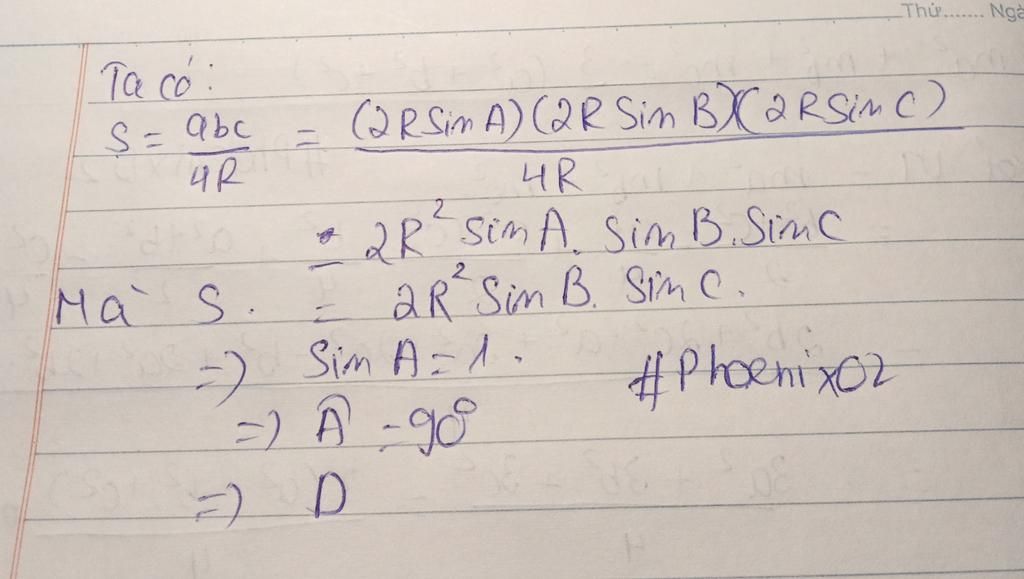 Thứ....... Ngà
Ta có:
S = abc/4R = (2R Sin A)(2R Sin B)(2R Sin C)/4R
= 2R² Sin A. Sin B. Sin C
Mà S. = 2R² Sin B. Sin C.
=> Sin A = 1.
#Phoenix02
=> Â = 90°
=> D